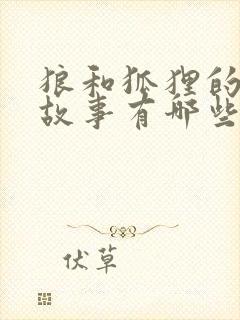 狼和狐狸的
故事有哪些
伏草